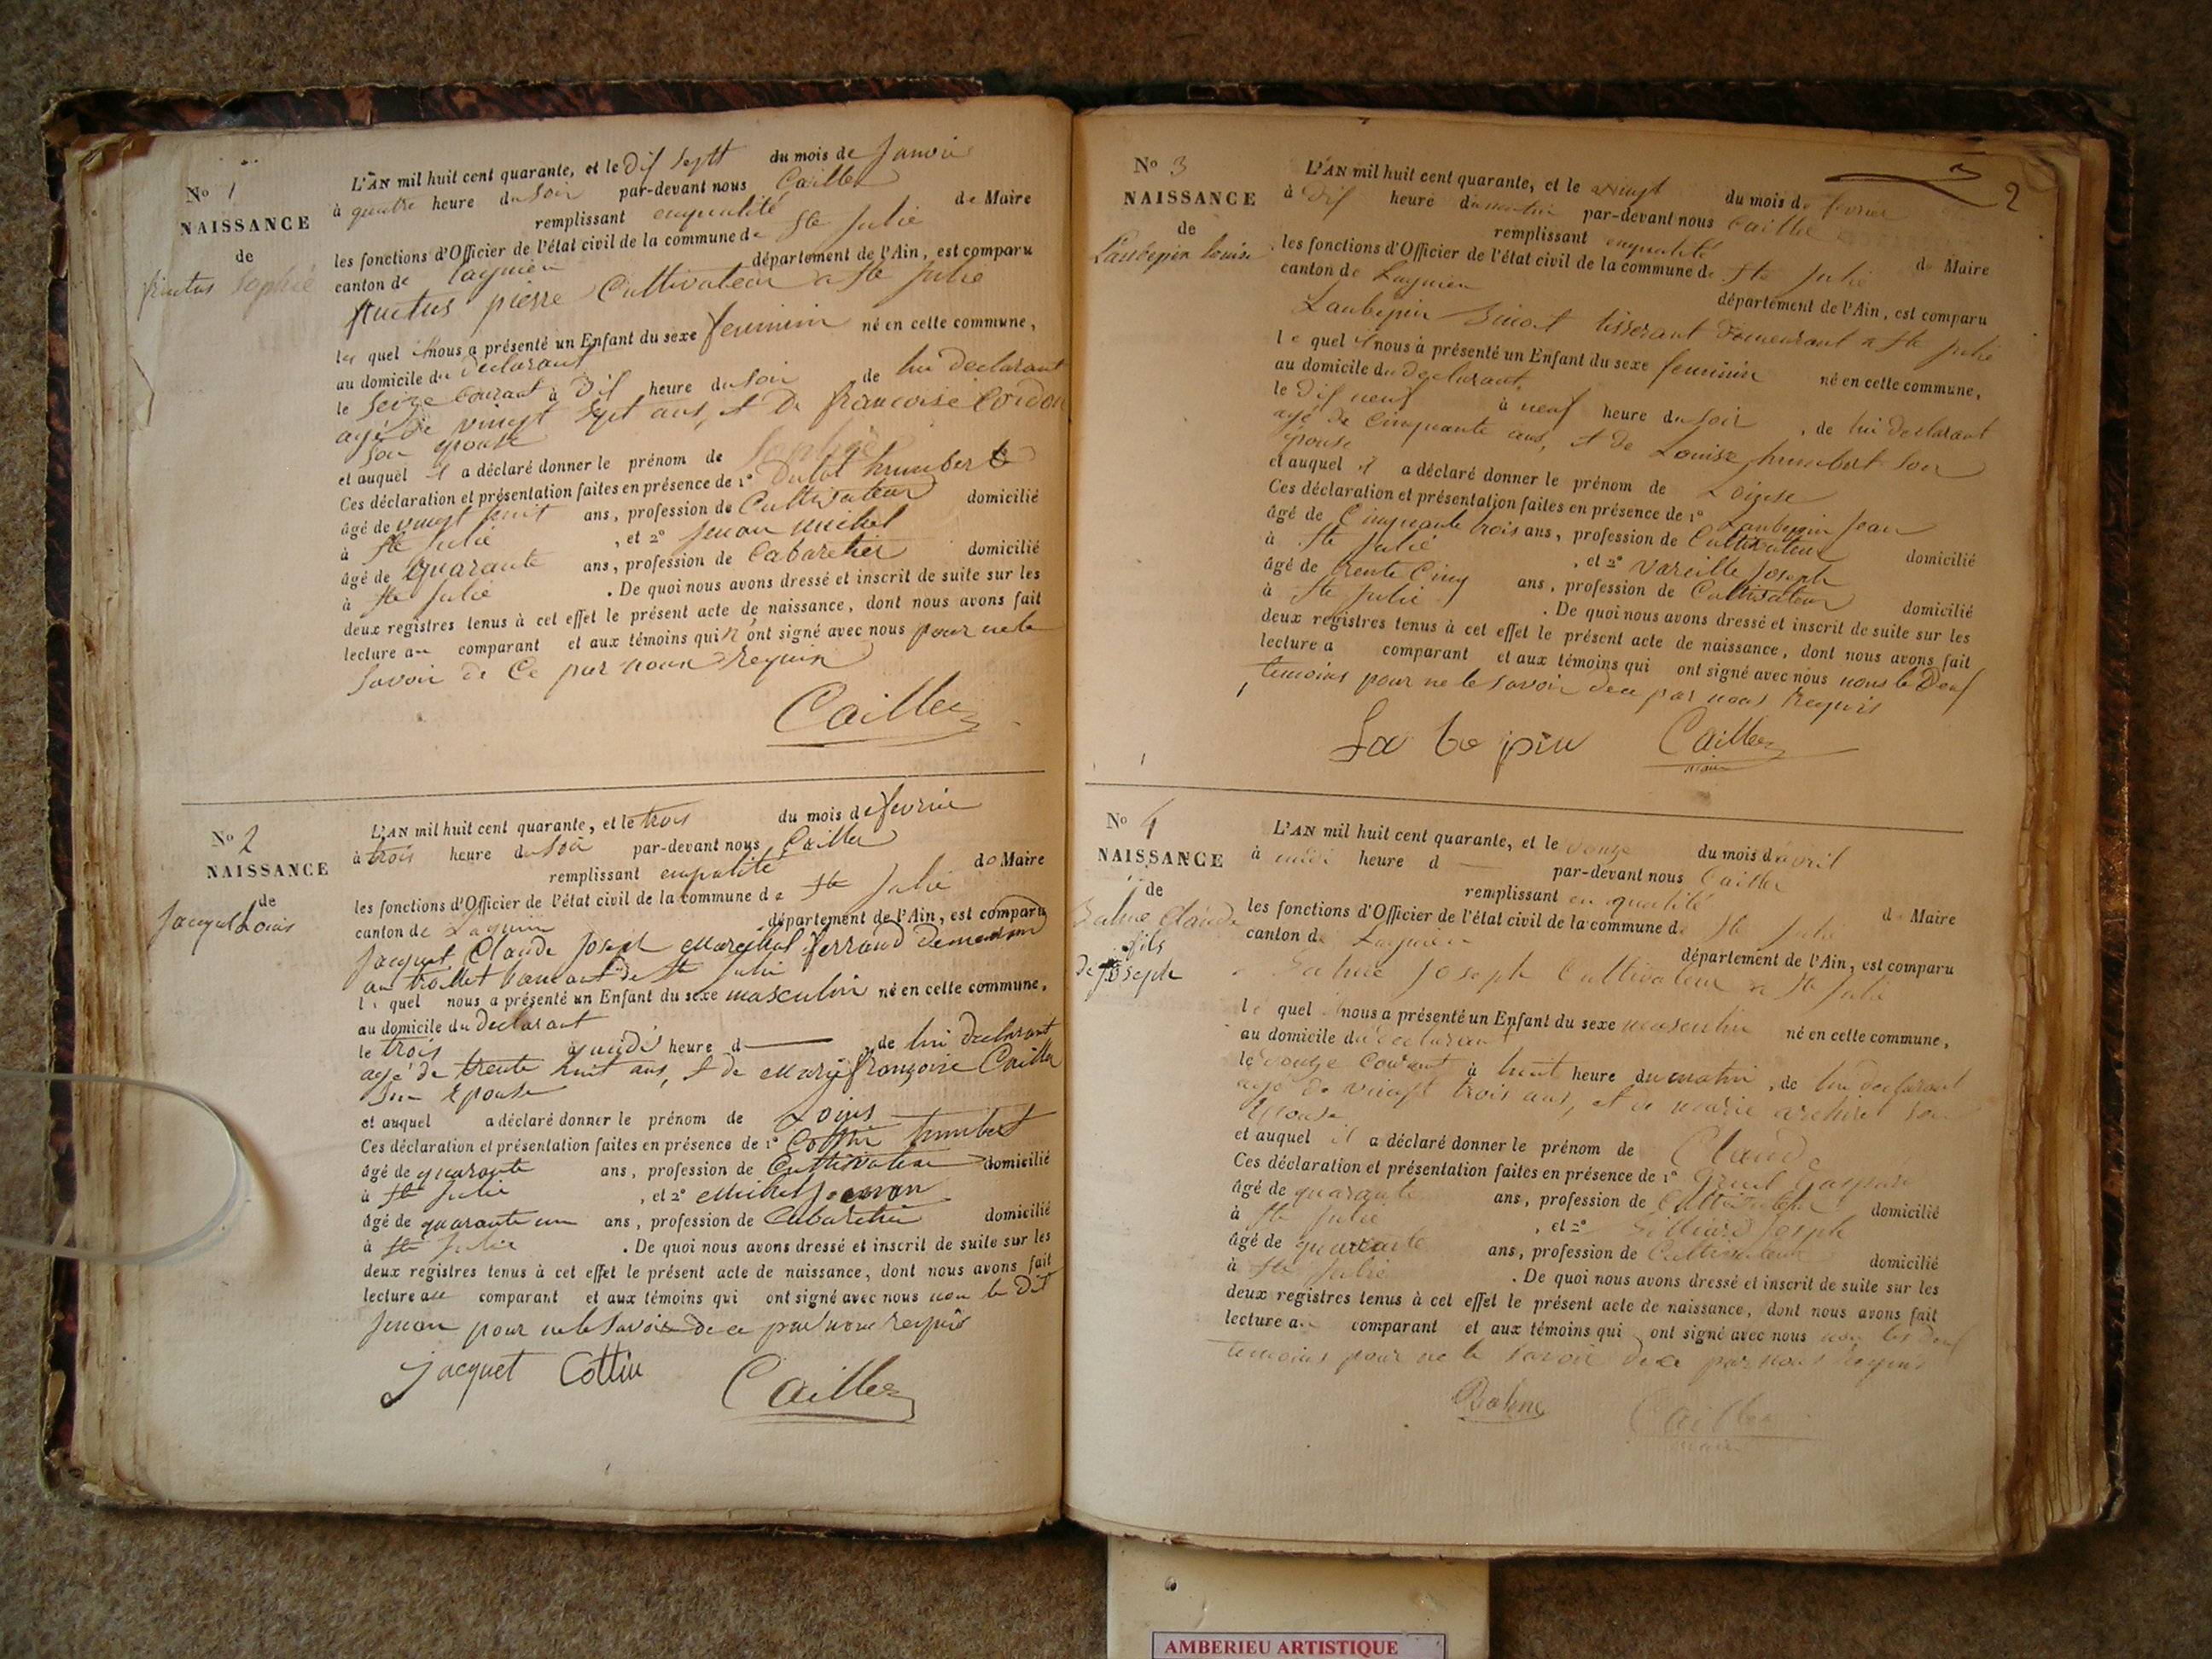 No 1
NAISSANCE
de
fructus Sophie
L'AN mil huit cent quarante, et le dif sept du mois de Janvie
à quatre heure du Soir par-devant nous Cailler
remplissant enqualité de Maire
les fonctions d'Officier de l'état civil de la commune de Ste Julie
canton de Lagnieu département de l'Ain, est comparu
fructus pierre Cultivateur a Ste Julie
le quel il nous a présenté un Enfant du sexe feminin né en cette commune,
au domicile du declarant
le Seize Courant à Dif heure du Soir de lui declarant
agé de vingt Sept ans, et de francoise Cordon
Son épouse
et auquel il a déclaré donner le prénom de Sophie
Ces déclaration et présentation faites en présence de 1° humbert
âgé de vingt huit ans, profession de Cultivateur domicilié
à Ste Julie, et 2° Jenan michel
âgé de quarante ans, profession de Cabaretier domicilié
à Ste Julie. De quoi nous avons dressé et inscrit de suite sur les
deux registres tenus à cet effet le présent acte de naissance, dont nous avons fait
lecture au comparant et aux témoins qui n ont signé avec nous pour ne le
Savoir de Ce par nous requis
Cailler
No 2
NAISSANCE
de
Jacquet Louis
L'AN mil huit cent quarante, et le trois du mois de fevrie
à trois heure du Soir par-devant nous Cailler
remplissant enqualité de Maire
les fonctions d'Officier de l'état civil de la commune de Ste Julie
canton de Lagnieu département de l'Ain, est comparu
Jacquet Claude Joseph Marechal ferrand demeurant
au de Ste Julie
le quel nous a présenté un Enfant du sexe masculin né en cette commune,
au domicile du declarant
le trois a midi heure d , de lui declarant
agé de trente huit ans, et de Marie françoise Cailler
Son épouse
et auquel a déclaré donner le prénom de Loius
Ces déclaration et présentation faites en présence de 1° Cottin humbert
âgé de quarante ans, profession de Cultivateur domicilié
à Ste Julie, et 2° Michel Jenan
âgé de quarante un ans, profession de Cabaretier domicilié
à Ste Julie. De quoi nous avons dressé et inscrit de suite sur les
deux registres tenus à cet effet le présent acte de naissance, dont nous avons fait
lecture au comparant et aux témoins qui ont signé avec nous non le Dit
Jenan pour ne le Savoir de ce par nous requis
Jacquet Cottin Cailler
2
No 3
NAISSANCE
de
Laubepin louise
L'AN mil huit cent quarante, et le vingt du mois de fevrier
à Dif heure du matin par-devant nous Cailler
remplissant enqualité de Maire
les fonctions d'Officier de l'état civil de la commune de Ste Julie
canton de Lagnieu département de l'Ain, est comparu
Laubepin tisserant Demeurant a Ste Julie
le quel il nous à présenté un Enfant du sexe feminin né en cette commune,
au domicile du declarant
le Dif neuf à neuf heure du Soir, de lui declarant
agé de Cinquante ans, et de Louise humbert Son
épouse
et auquel il a déclaré donner le prénom de Loiuse
Ces déclaration et présentation faites en présence de 1° Laubepin Jean
âgé de Cinquante trois ans, profession de Cultivateur domicilié
à Ste Julie, et 2° Vareille Joseph
âgé de trente Cinq ans, profession de Cultivateur domicilié
à Ste Julie. De quoi nous avons dressé et inscrit de suite sur les
deux registres tenus à cet effet le présent acte de naissance, dont nous avons fait
lecture a comparant et aux témoins qui ont signé avec nous nous le Deuf
temoins pour ne le Savoir de ce par nous requis
La be pin Cailler
maire
No 4
NAISSANCE
de
Bahne Claude
fils
de Joseph
L'AN mil huit cent quarante, et le douze du mois d avril
à midi heure d par-devant nous Cailler
remplissant en qualité de Maire
les fonctions d'Officier de l'état civil de la commune de Ste Julie
canton de Lagnieu département de l'Ain, est comparu
Joseph Cultivateur a Ste Julie
le quel il nous a présenté un Enfant du sexe masculin né en cette commune,
au domicile du declarant
le douze Courant à huit heure du matin, de lui declarant
agé de vingt trois ans, et de marie son
épouse
et auquel il a déclaré donner le prénom de Claude
Ces déclaration et présentation faites en présence de 1° Gaspard
âgé de quarante ans, profession de Cultivateur domicilié
à Ste Julie, et 2° Joseph
âgé de quarante ans, profession de Cultivateur domicilié
à Ste Julie. De quoi nous avons dressé et inscrit de suite sur les
deux registres tenus à cet effet le présent acte de naissance, dont nous avons fait
lecture au comparant et aux témoins qui ont signé avec nous non les Deuf
temoins pour ne le Savoir de ce par nous requis
Bahne Cailler
maire
AMBERIEU ARTISTIQUE